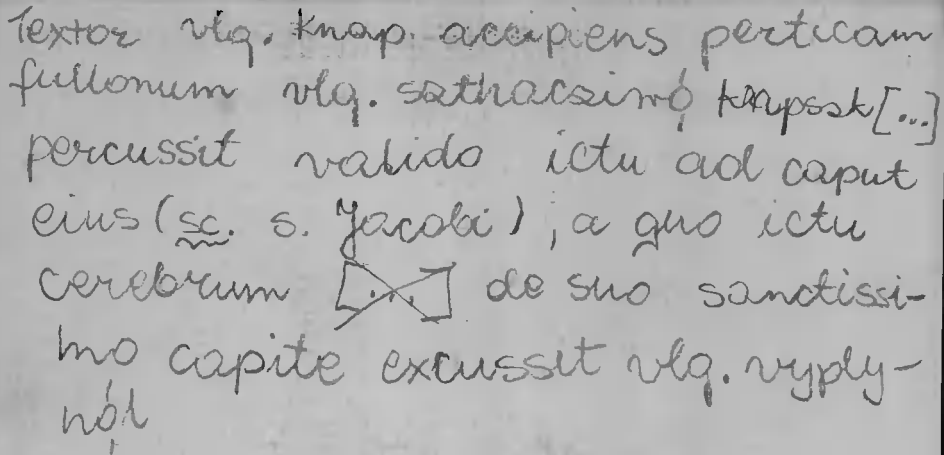 Textor vlg. knap. accipiens perticam
fullonum vlg. szthaczimø knapszk[...]
percussit valido ictu ad caput
eius (sc. s. Jacobi), a quo ictu
cerebrum de suo sanctissi-
mo capite excussit vlg. vyply-
nøl